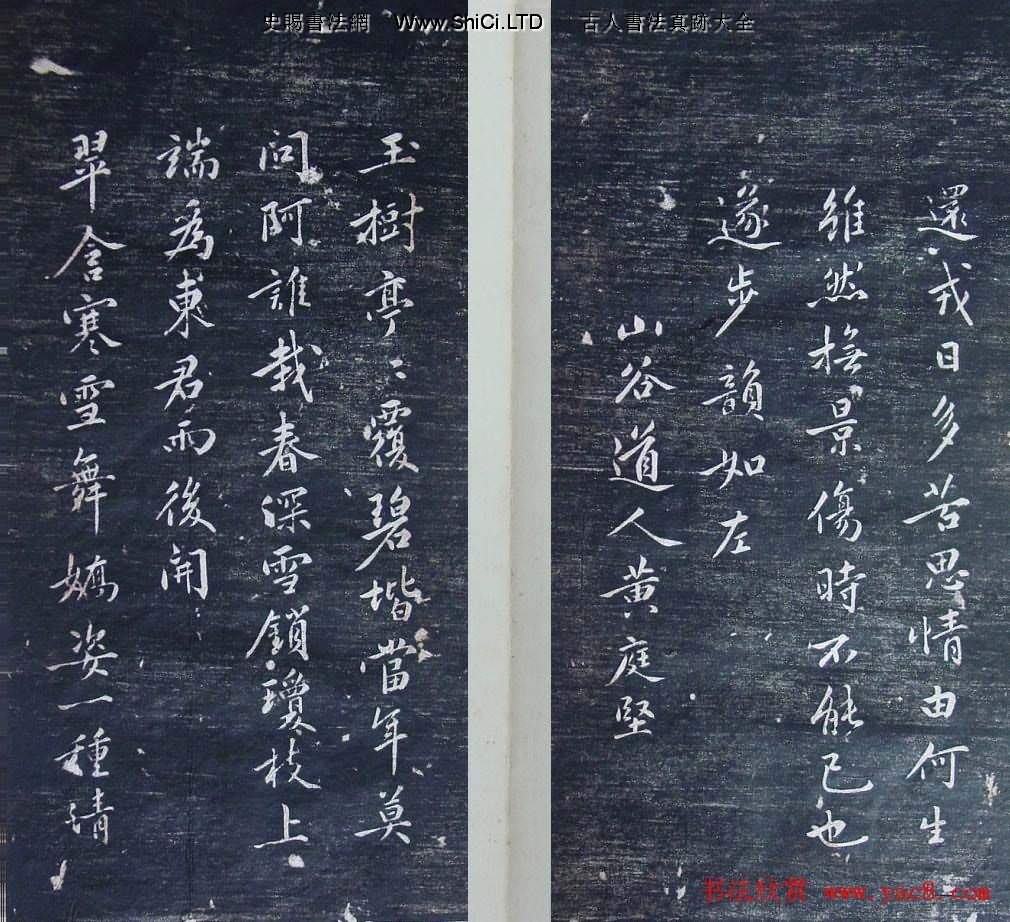 史賜書法網 Www.ShiCi.LTD 古人書法真跡大全
還戎日多苦思情由何生
雖然撫景傷時不能已也
遂步韻如左
山谷道人黄庭堅
玉樹亭〻覆碧堦當年莫
问阿誰栽春深雪鎖瓊枝上
端為東君雨後開
翠含寒雪舞嬌姿一種清
书法欣赏 www.yac8.com